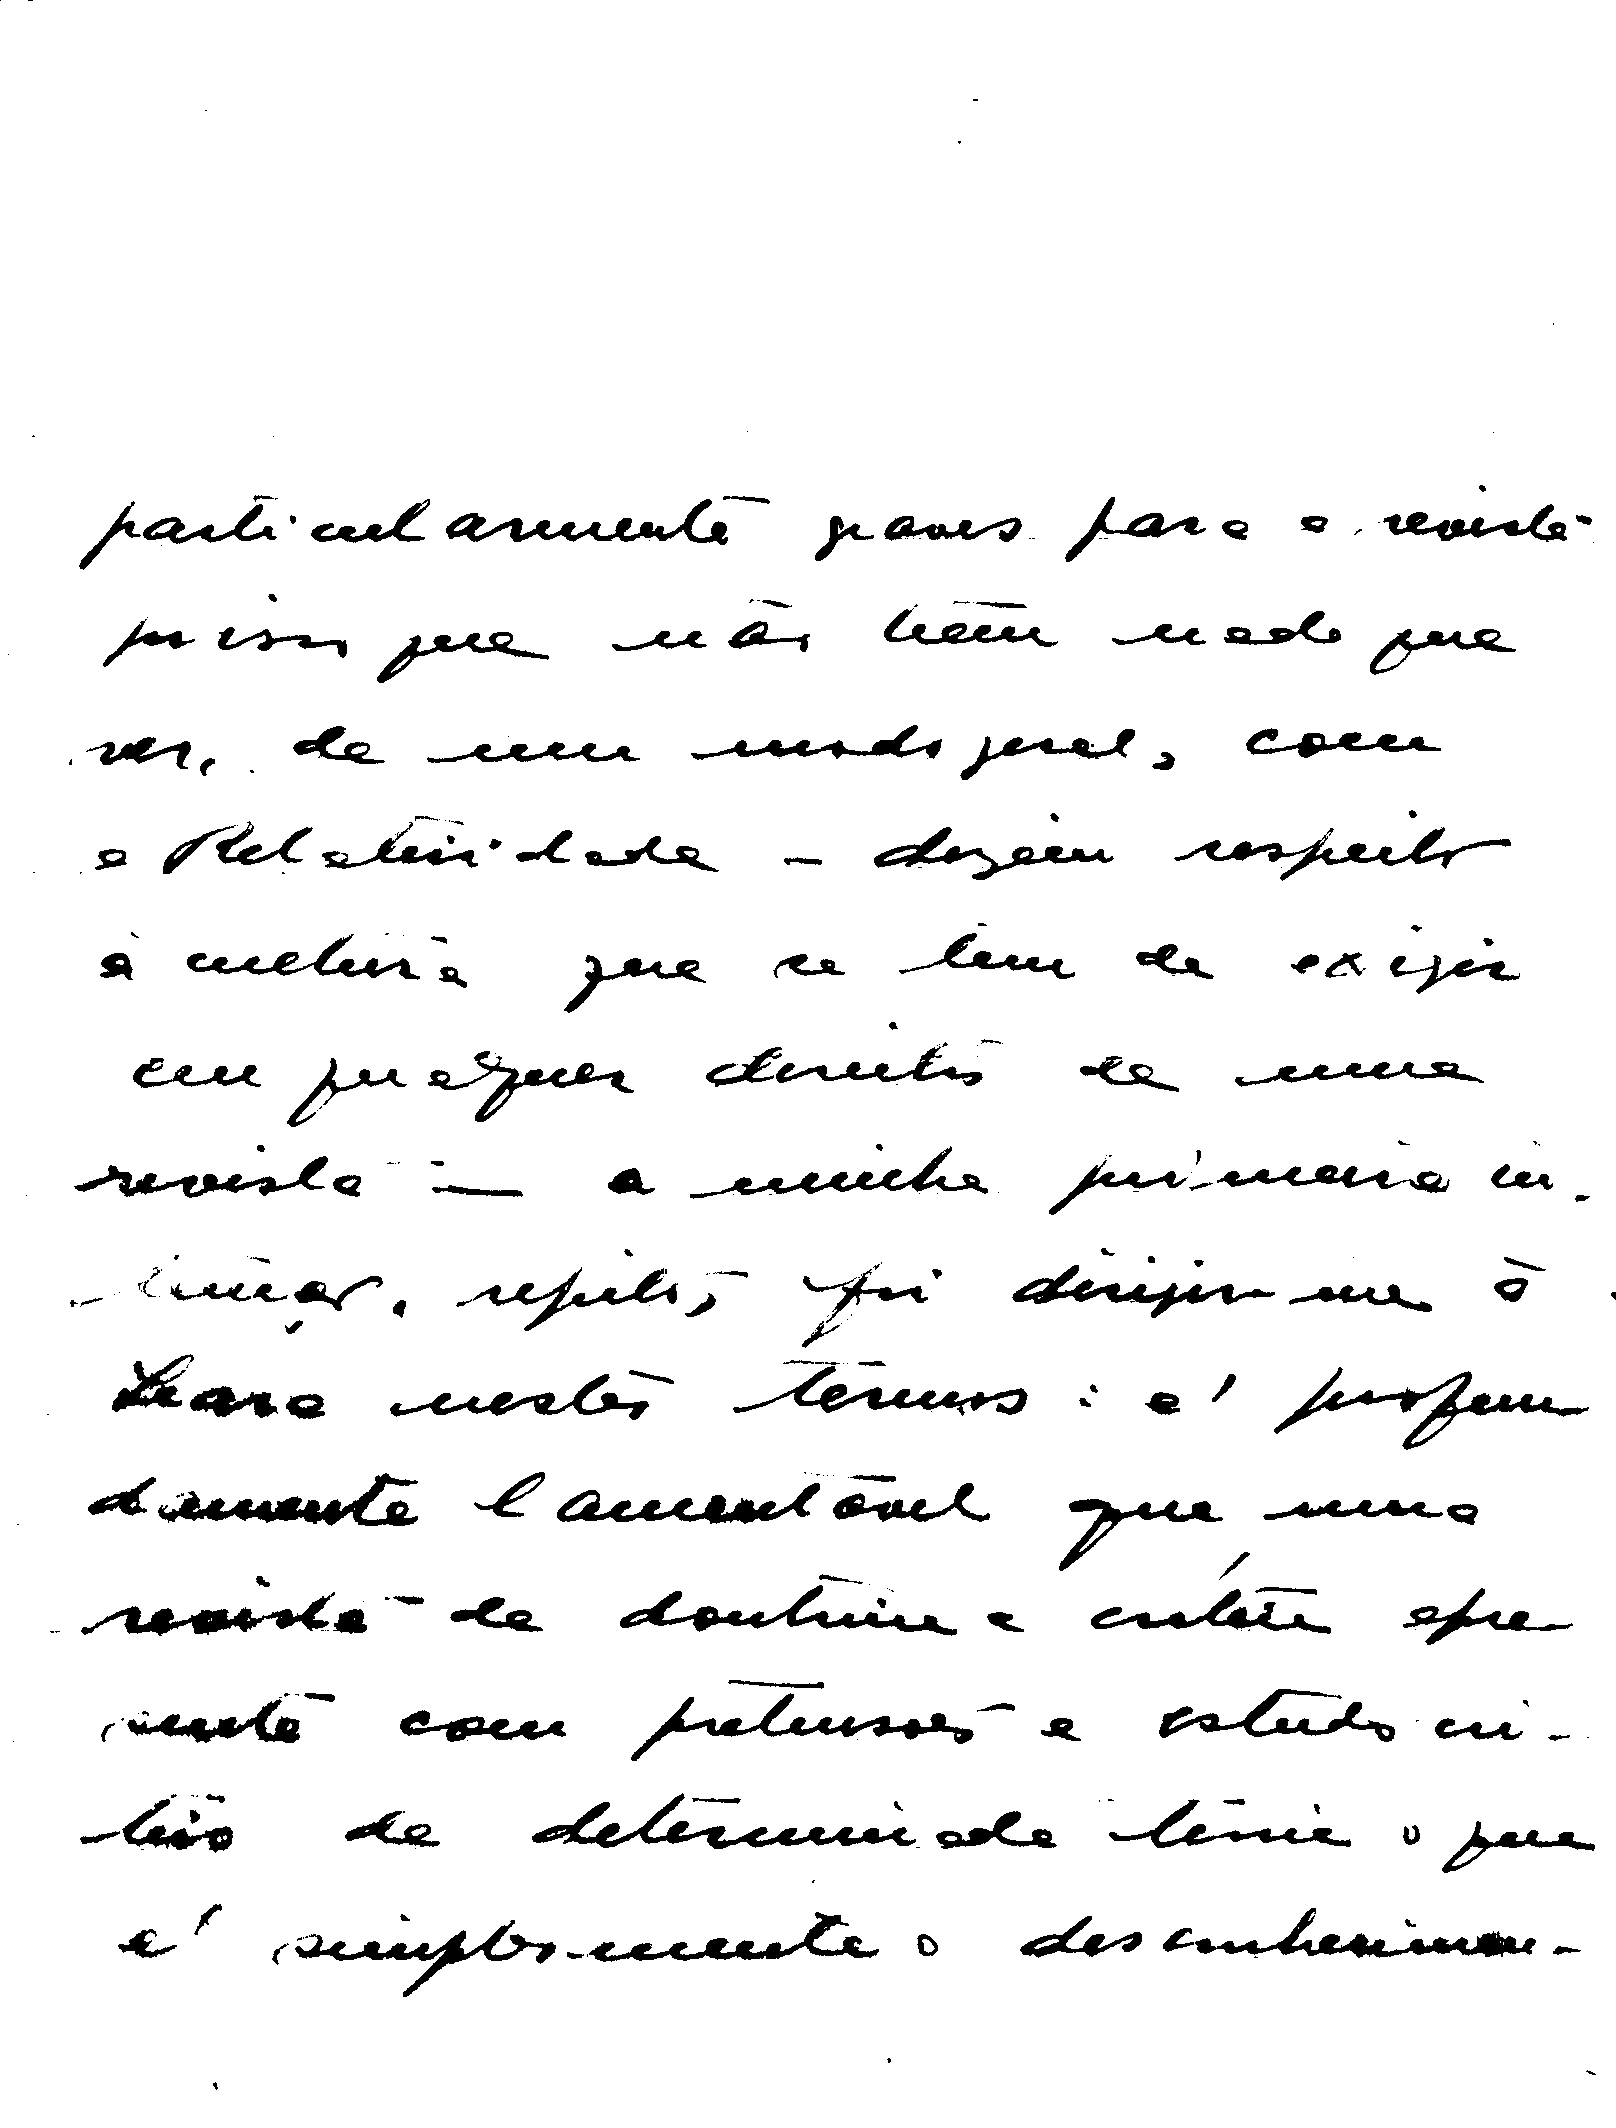 particularmente graves para a revista
por isso que não têm nada que
ver, de um modo geral, com
a Relatividade – dizem respeito
à cultura que se tem de exigir
em qualquer director de uma
revista – a minha primeira in-
tenção, repito, foi dirigir-me à
Seara nestes termos: é profun
damente lamentável que uma
revista de doutrina e crítica apre
sente com pretensões a estudo crí-
tico de determinada teoria o que
é simplesmente o desconhecimen-